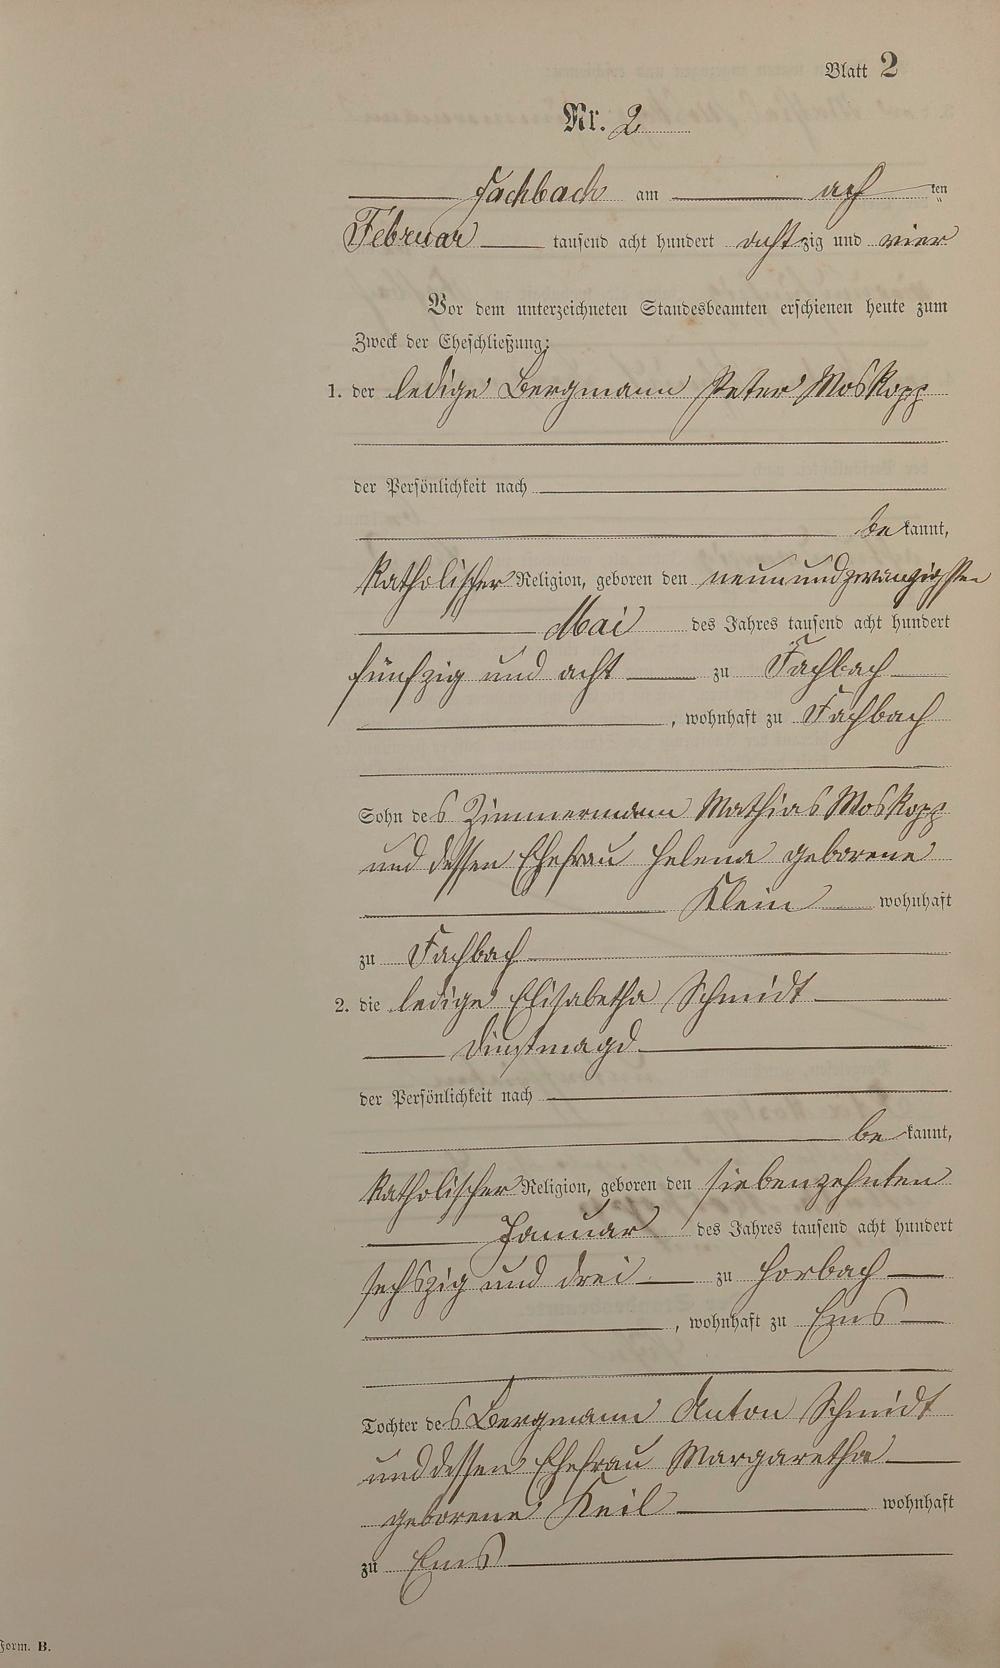 Blatt 2
Nr. 2
Fachbach am acht ten
Februar tausend acht hundert achtzig und vier
Vor dem unterzeichneten Standesbeamten erschienen heute zum
Zweck der Eheschließung:
1. der ledige Bergmann Peter Moskopp
der Persönlichkeit nach
be kannt,
katholischer Religion, geboren den neunundzwanzigsten
Mai des Jahres tausend acht hundert
fünfzig und acht zu Fachbach
, wohnhaft zu Fachbach
Sohn des Zimmermann Mathias Moskopp
und dessen Ehefrau Helena geborene
Klein wohnhaft
zu Fachbach
2. die ledige Elisabetha Schmidt
Dinstmagd
der Persönlichkeit nach
be kannt,
katholischer Religion, geboren den siebenzehnten
Januar des Jahres tausend acht hundert
sechszig und drei zu Horbach
, wohnhaft zu Ems
Tochter des Bergmann Anton Schmidt
und dessen Ehefrau Margaretha
geborene Keil wohnhaft
zu Ems
Form. B.